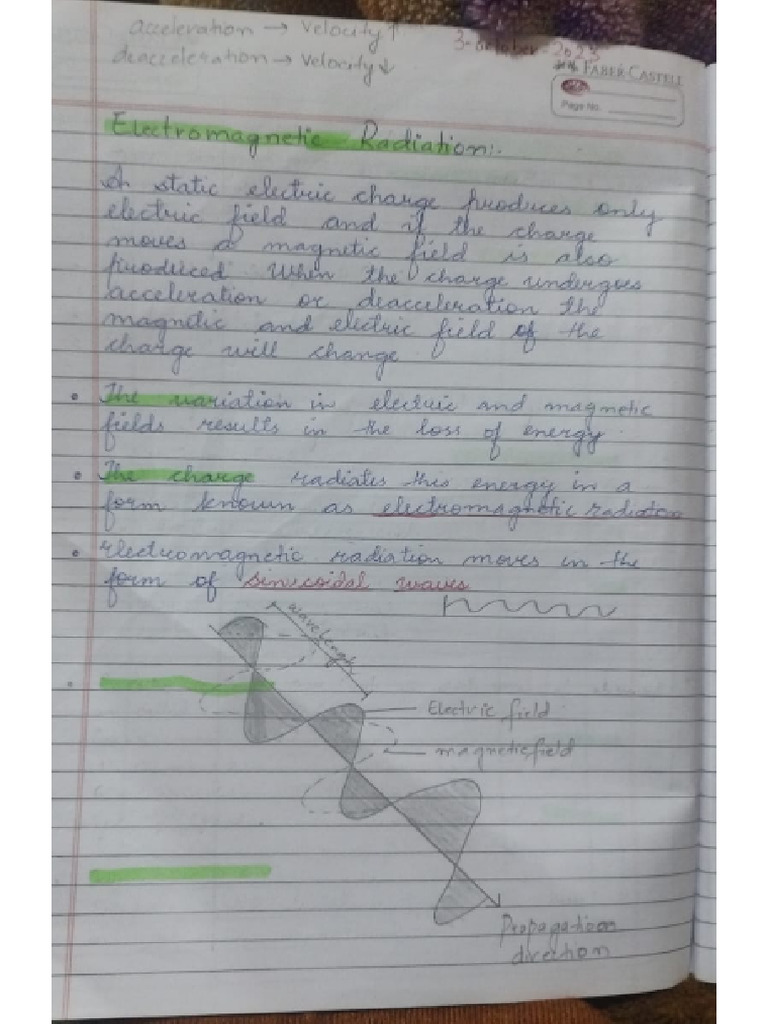 acceleration → Velocity ↑
deacceleration → Velocity ↓
3-October-2023
FABER-CASTELL
Page No.
Electromagnetic Radiation:-
A static electric charge produces only
electric field and if the charge
moves a magnetic field is also
produced when the charge undergoes
acceleration or deacceleration the
magnetic and electric field of the
charge will change
• The variation in electric and magnetic
fields results in the loss of energy.
• The charge radiates this energy in a
form known as electromagnetic radiation
• Electromagnetic radiation moves in the
form of sinusoidal waves
wavelength
Electric field
magnetic field
Propagation
direction